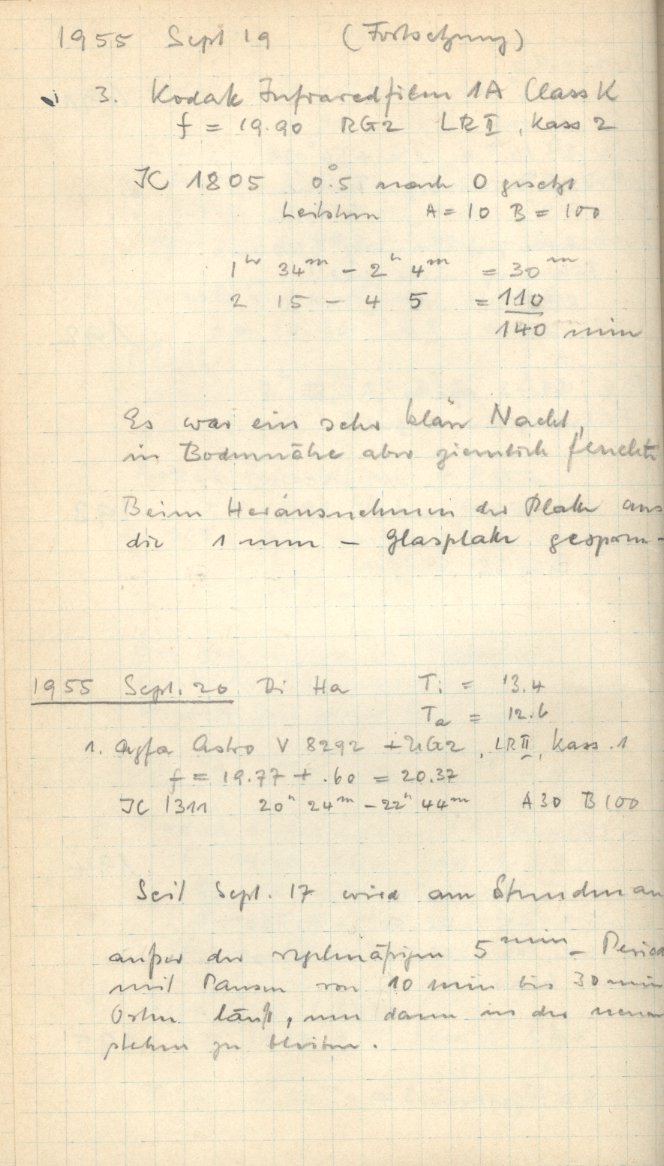 1955 Sept 19 (Fortsetzung)
3. Kodak Infraredfilm 1A Class K
f = 19.90 RG2 LR II, Kass 2
IC 1805 0°.5 nach O gesetzt
Leitstern A = 10 B = 100
1h 34m - 2h 4m = 30m
2 15 - 4 5 = 110
140 min
Es war ein sehr klare Nacht,
in Bodennähe aber ziemlich feucht
Beim Herausnehmen der Platte aus
die 1 mm - Glasplatte gesprun-
1955 Sept. 20 Di Ha Ti = 13.4
Ta = 12.6
1. Agfa Astro V 8292 + RG2, LR II, Kass. 1
f = 19.77 + .60 = 20.37
IC 1311 20h 24m - 22h 44m A 30 B 100
Seit Sept. 17 wird am Stundenan
außer der regelmäßigen 5 min - Period
mit Pausen von 10 min bis 30 min
Osten läuft, um dann in der neuen
stehen zu bleiben.